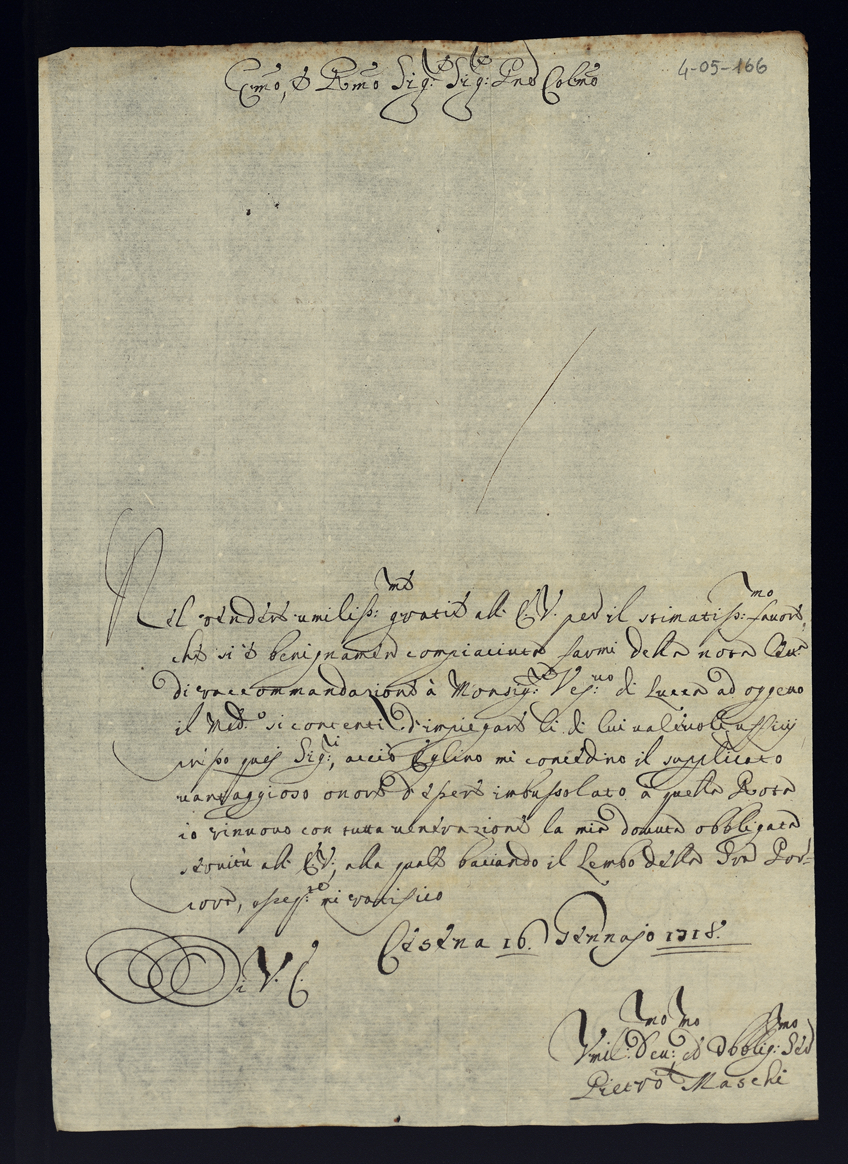 4-05-166
Emo, e Rmo Sig:re Sig:re Pne Colmo
Nel render umiliss:mte gratie all' E.V. per il stimatiss:mo favore,
che si è benignamente compiaciuta farmi della nota
di raccommandazione à Monsig:re Ves:vo di Lucca ad oggetto
il Med:o si contenti d'impiegare li di lui valevoli ufficij
presso quei Sig:ri, acciò Eglino mi concedino il supplicato
vantaggioso onore d'esser imbussolato à quella Rota
io rinuovo con tutta venerazione la mia dovuta obbligata
servitù all' E.V., alla quale baciando il Lembo della Sra Por=
pora, osseq:te mi ratifico
Di V. E.
Cesena 16. Gennajo 1718.
Vmil:mo Deu:mo ed Obblig:mo Ser
Pietro Maschi